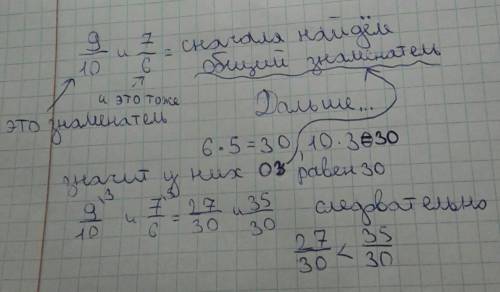 9/10 и 7/6 = сначала найдём
общий знаменатель
и это тоже
это знаменатель
Дальше...
6·5=30 10·3=30
значит у них ОЗ равен 30
9/10 ³ и 7/6 ⁵ = 27/30 и 35/30 следовательно
27/30 < 35/30